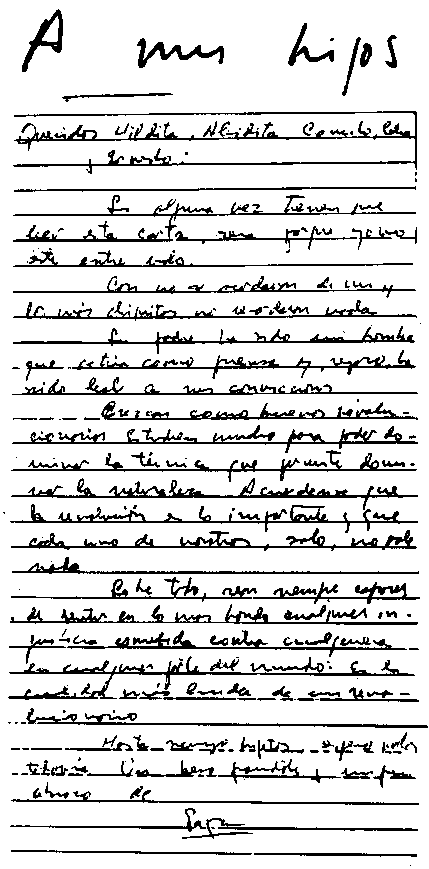 A mis hijos
Queridos Hildita, Aleidita, Camilo, Celia
y Ernesto:
Si alguna vez tienen que
leer esta carta, será porque yo no
esté entre uds.
Casi no se acordaran de mi y
los más chiquitos no recordaran nada
Su padre ha sido un hombre
que actúa como piensa y, seguro, ha
sido leal a sus convicciones
Crezcan como buenos revolu-
cionarios Estudien mucho para poder do-
minar la técnica que permite domi-
nar la naturaleza Acuerdense que
la revolución es lo importante y que
cada uno de nosotros, solo, no vale
nada
Sobre todo, sean siempre capaces
de sentir en lo mas hondo cualquier in-
justicia cometida contra cualquiera
en cualquier parte del mundo: Es la
cualidad más linda de un revo-
lucionario
Hasta siempre hijitos, espero verlos
todavía Un beso grandote y un gran
abrazo de
Papa